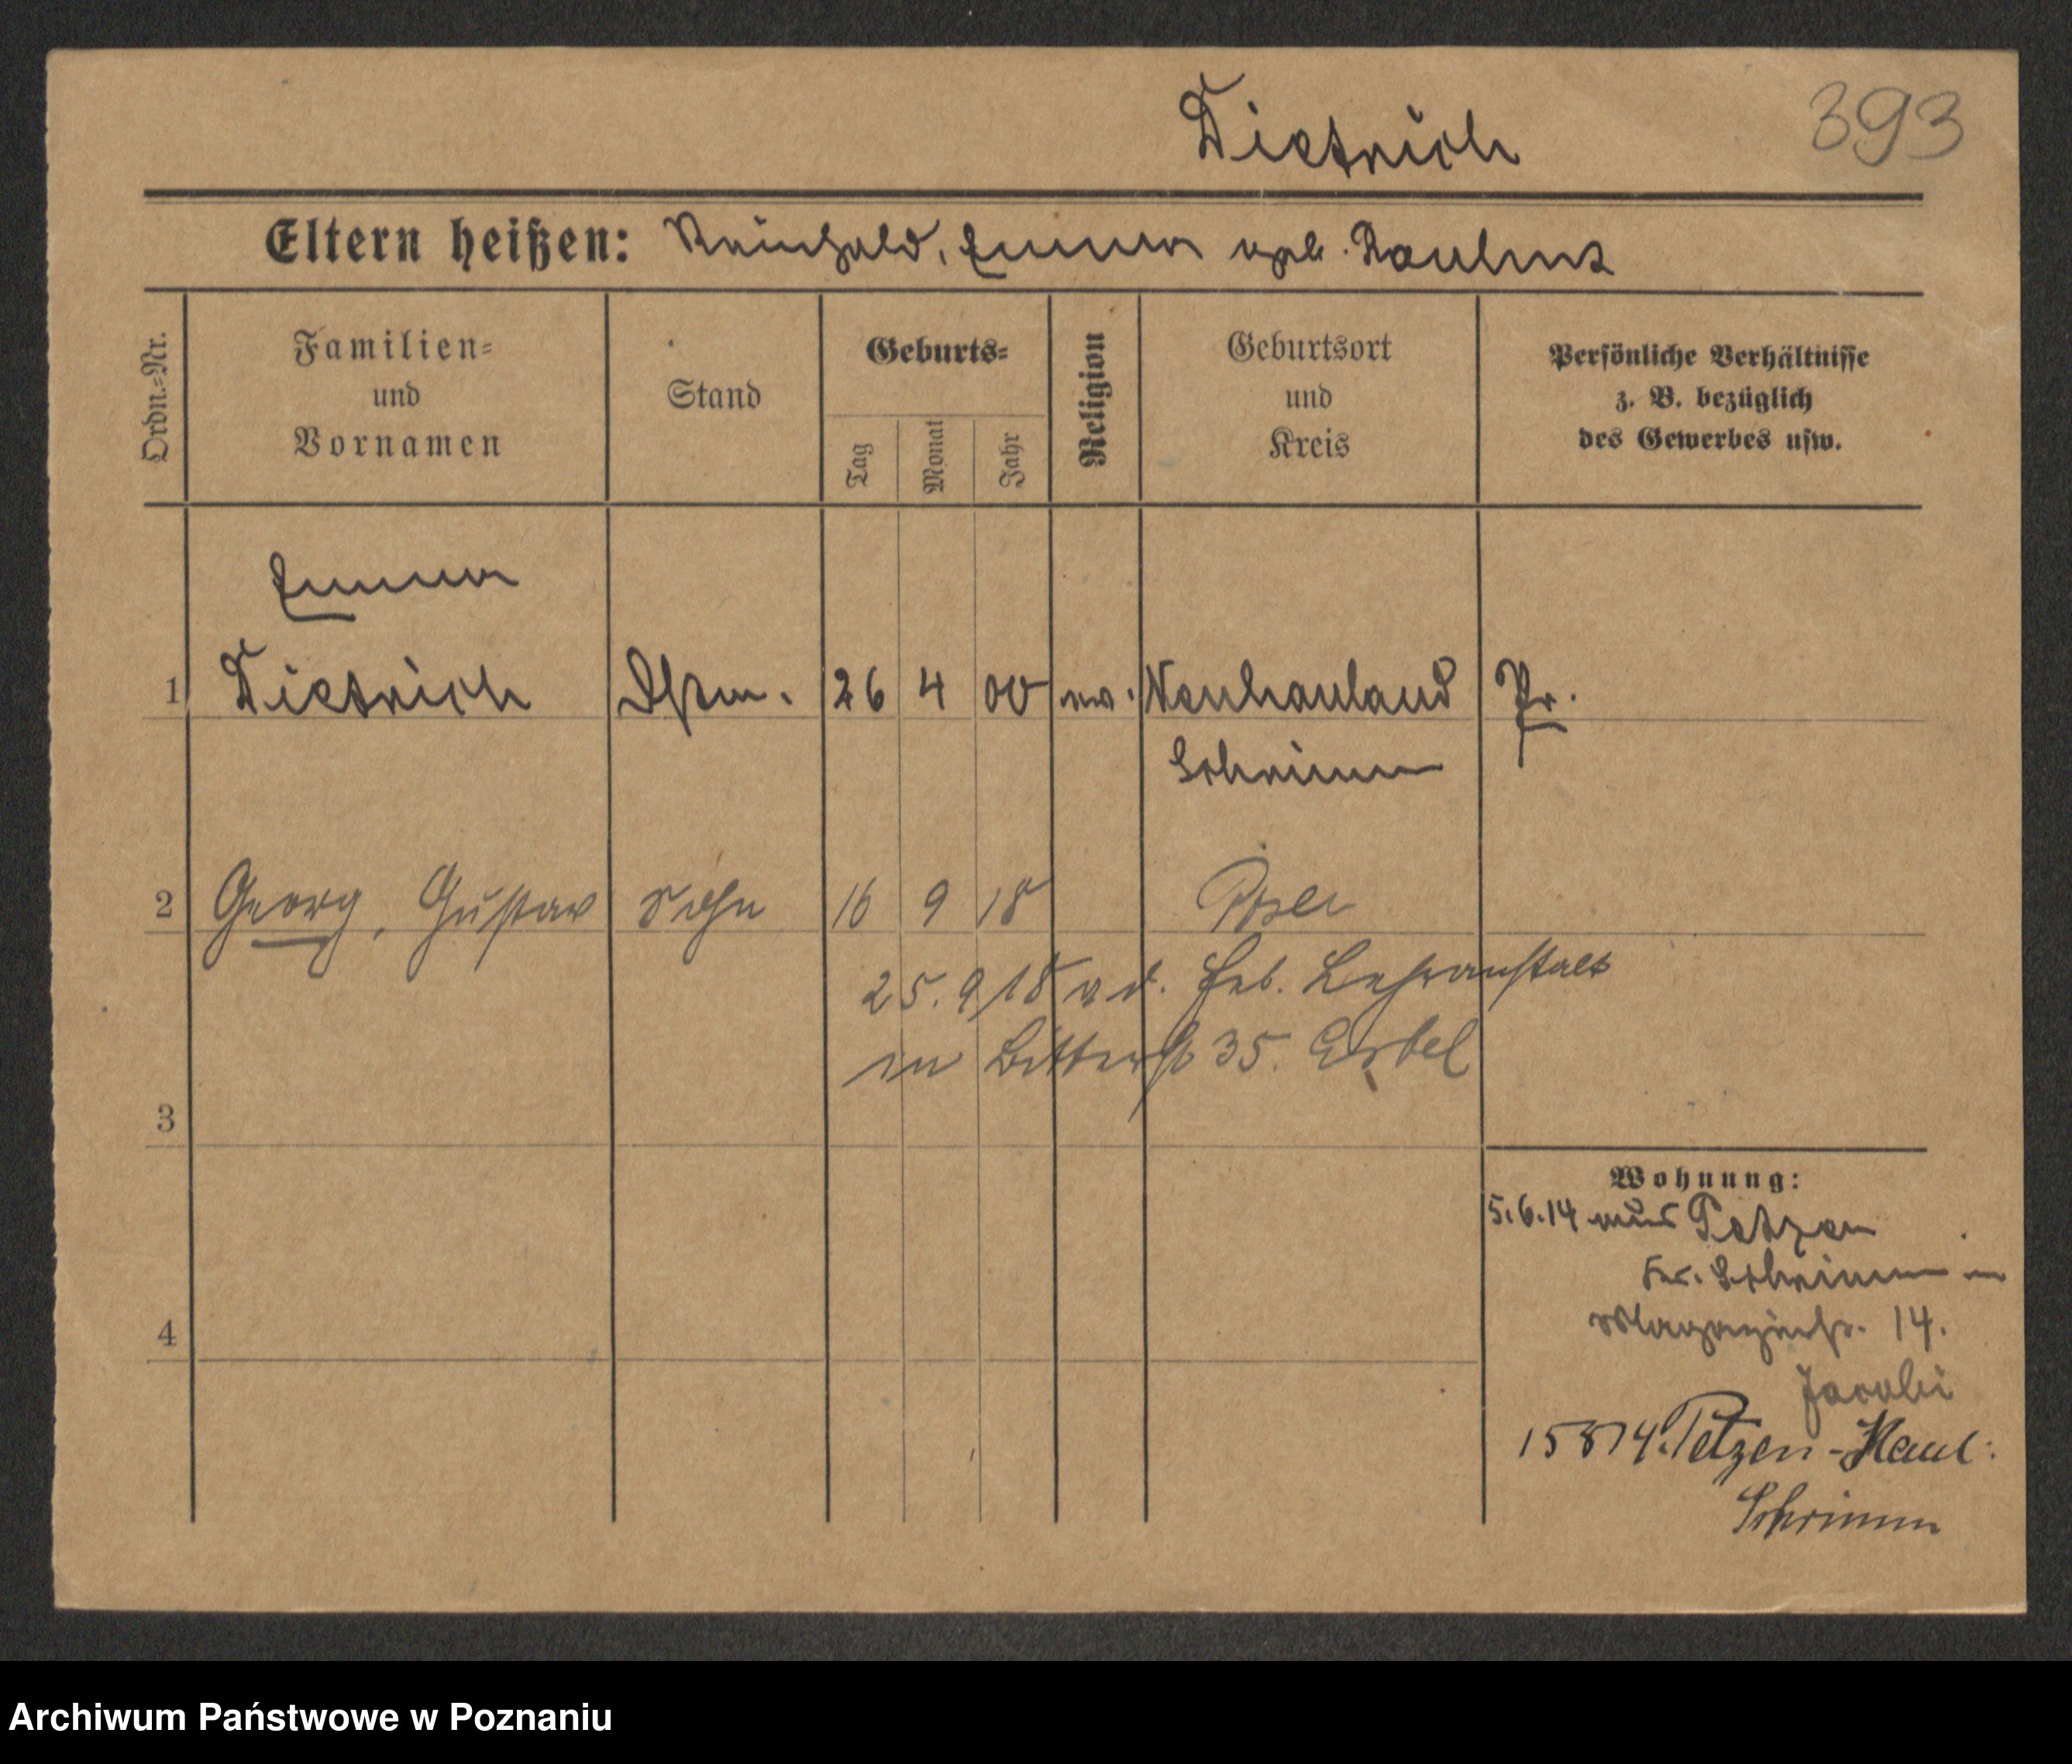 Dietrich
393
Eltern heißen: Reinhold, Emma geb. Paulus
Ordn.=Nr.
Familien=
und
Vornamen
Stand
Geburts=
Tag
Monat
Jahr
Religion
Geburtsort
und
Kreis
Persönliche Verhältnisse
z. B. bezüglich
des Gewerbes usw.
Emma
1 Dietrich Dstm. 26 4 00 ev. Neuhauland Pr.
Schrimm
2 Georg, Gustav Sohn 16 9 18 Posen
25. 9 18 a d. Heb. Lehranstalt
in 35.
3
Wohnung:
5.6.14 aus Petzen
Kr. Schrimm n
Magazinstr. 14.
4
Jacobi
15 8 14. Petzen-Haul:
Schrimm
Archiwum Państwowe w Poznaniu